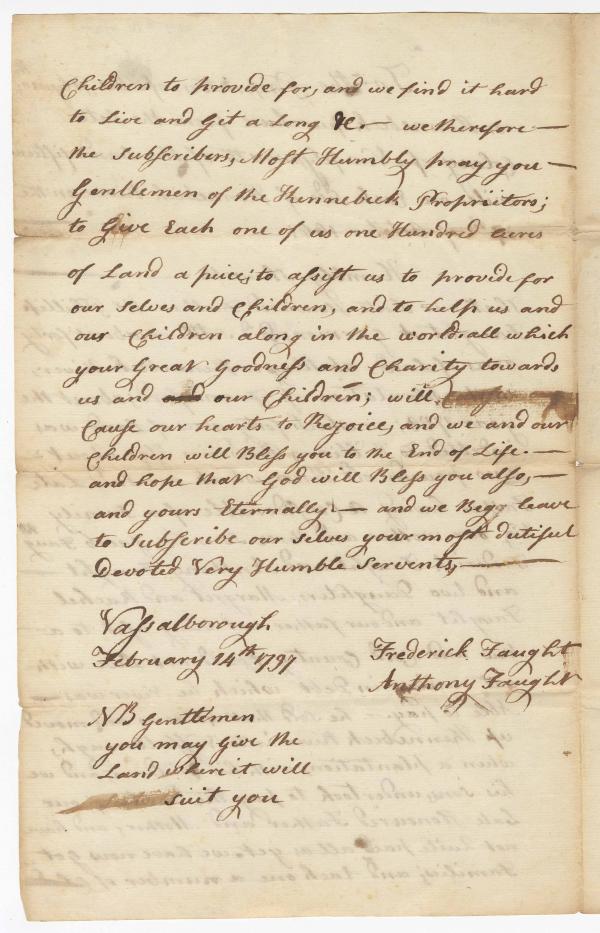 Children to provide for, and we find it hard
to Live and Git a Long &c. — we therefore —
the Subscribers, Most Humbly pray you —
Gentlemen of the Kennebeck Proprietors;
to Give Each one of us one Hundred acres
of Land a peice; to assist us to provide for
our selves and Children, and to help us and
our Children along in the world, all which
your Great Goodness and Charity towards
us and and our Children; will
Cause our hearts to Rejoice, and we and our
Children will Bless you to the End of Life. —
and hope that God will Bless you also, —
and yours Eternally — and we Begg leave
to Subscribe our selves your most dutiful
Devoted Very Humble Servents, —
Vassalborough
February 14th 1797
Frederick Faught
Anthony Faught
NB Gentlemen
you may Give the
Land where it will
suit you